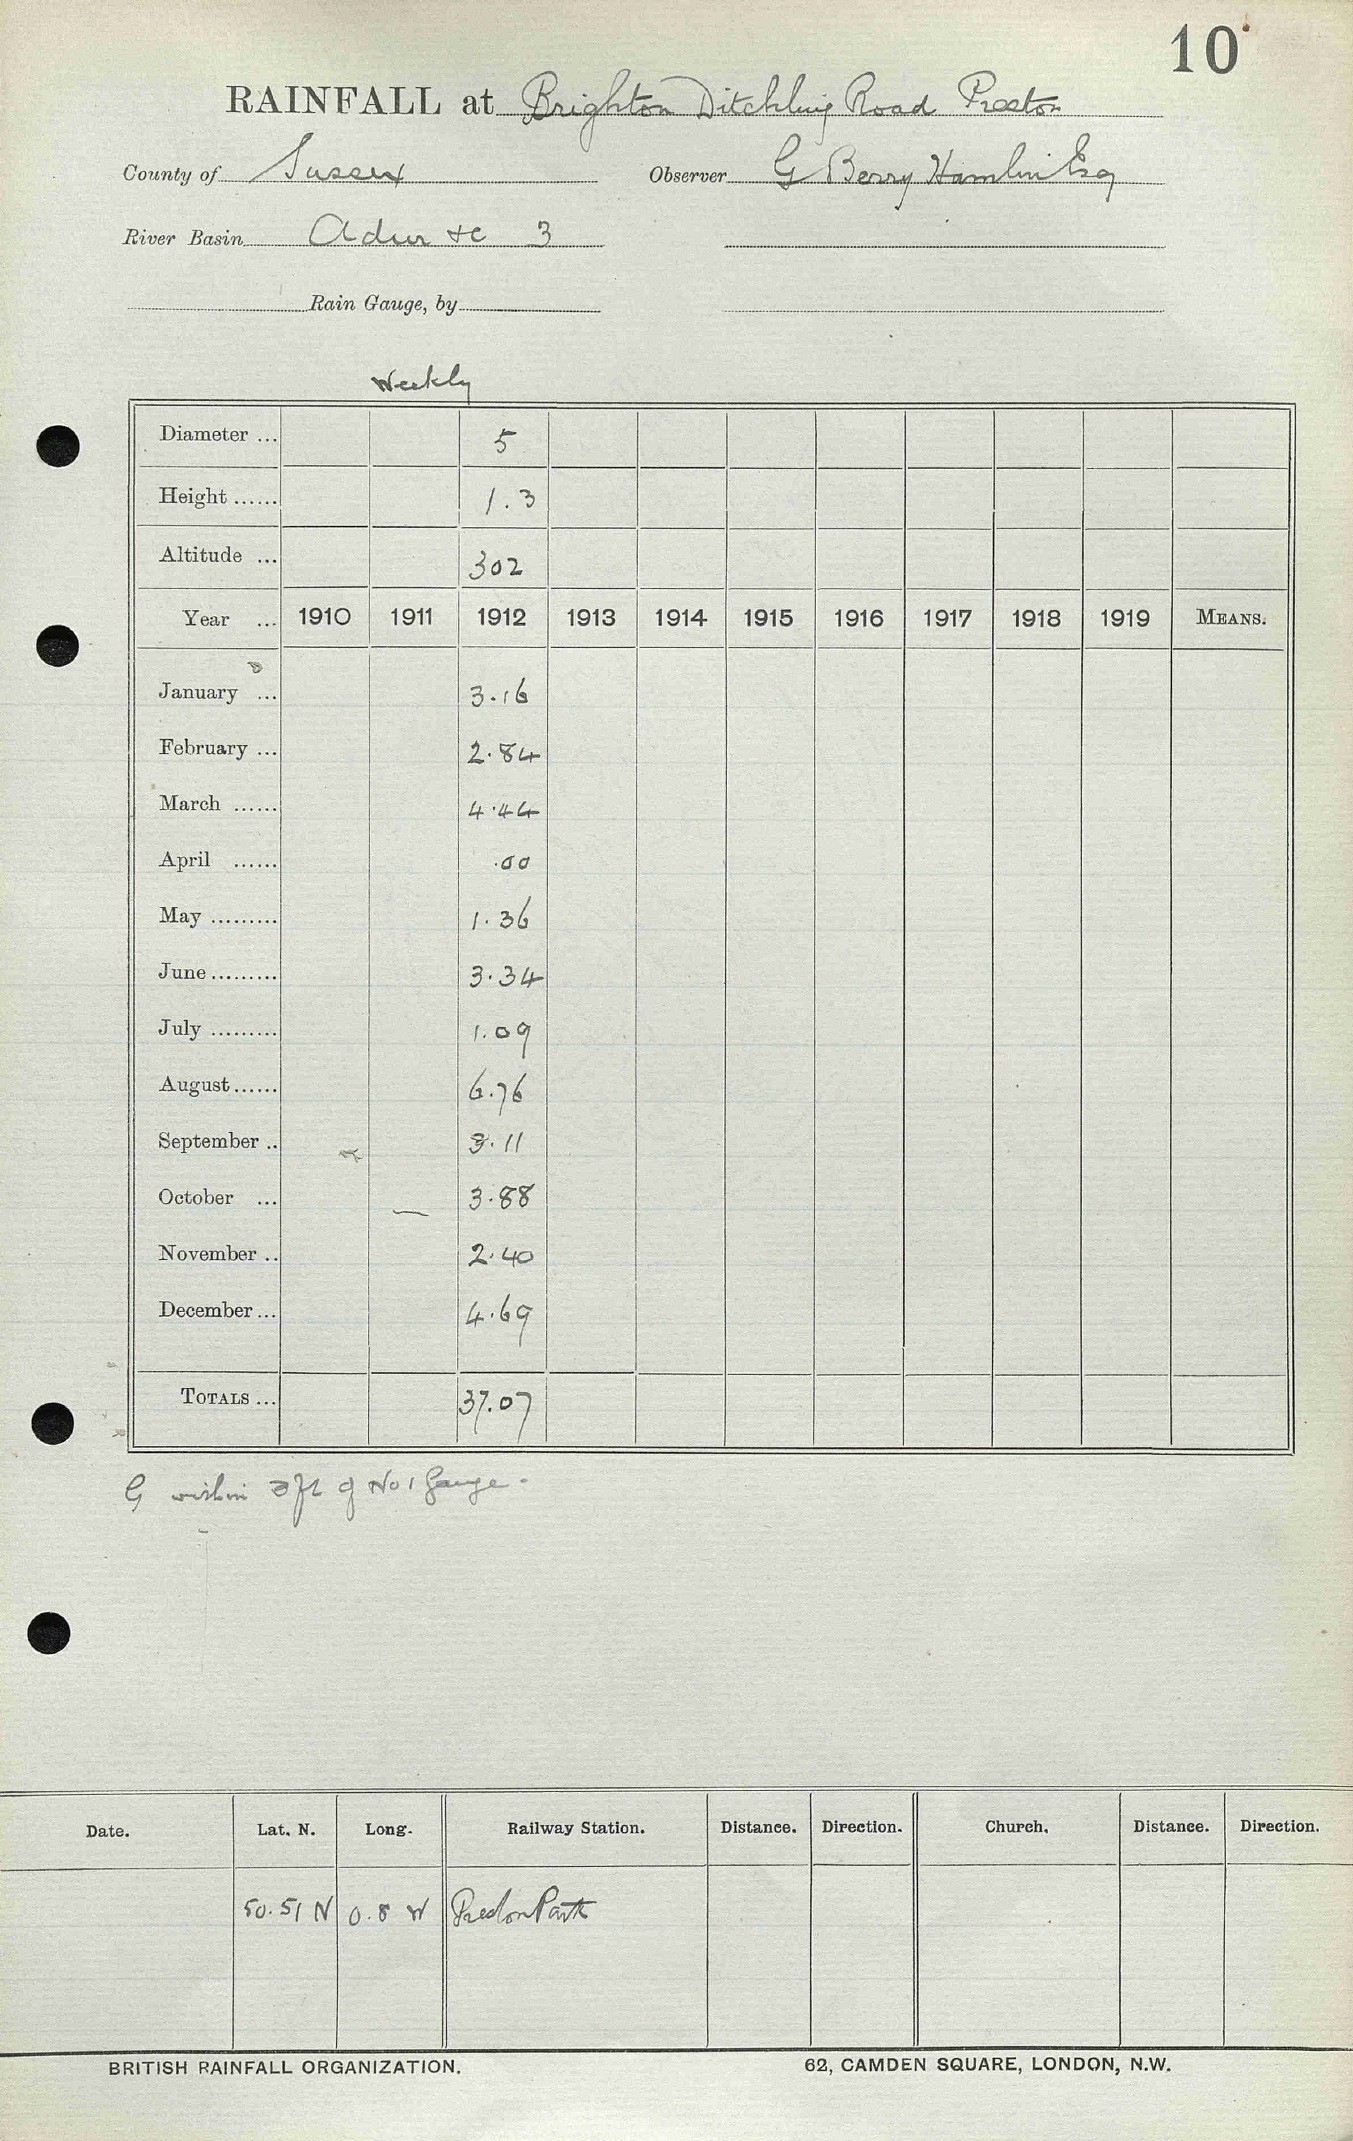 10
RAINFALL at Brighton Ditchling Road Preston
County of Sussex Observer G Berry Hamlin Esq
River Basin Adur &c 3
Rain Gauge, by
Weekly
Diameter ... 5
Height ...... 1.3
Altitude ... 302
Year ... 1910 1911 1912 1913 1914 1915 1916 1917 1918 1919 MEANS.
January ... 3.16
February ... 2.84
March ...... 4.44
April ...... .00
May ......... 1.36
June ......... 3.34
July ......... 1.09
August ...... 6.76
September .. 3.11
October ... — 3.88
November .. 2.40
December ... 4.69
TOTALS ... 37.07
G within ft of No 1 gauge.
Date. Lat. N. Long. Railway Station. Distance. Direction. Church. Distance. Direction.
50.51 N 0.8 W Preston Park
BRITISH RAINFALL ORGANIZATION. 62, CAMDEN SQUARE, LONDON, N.W.